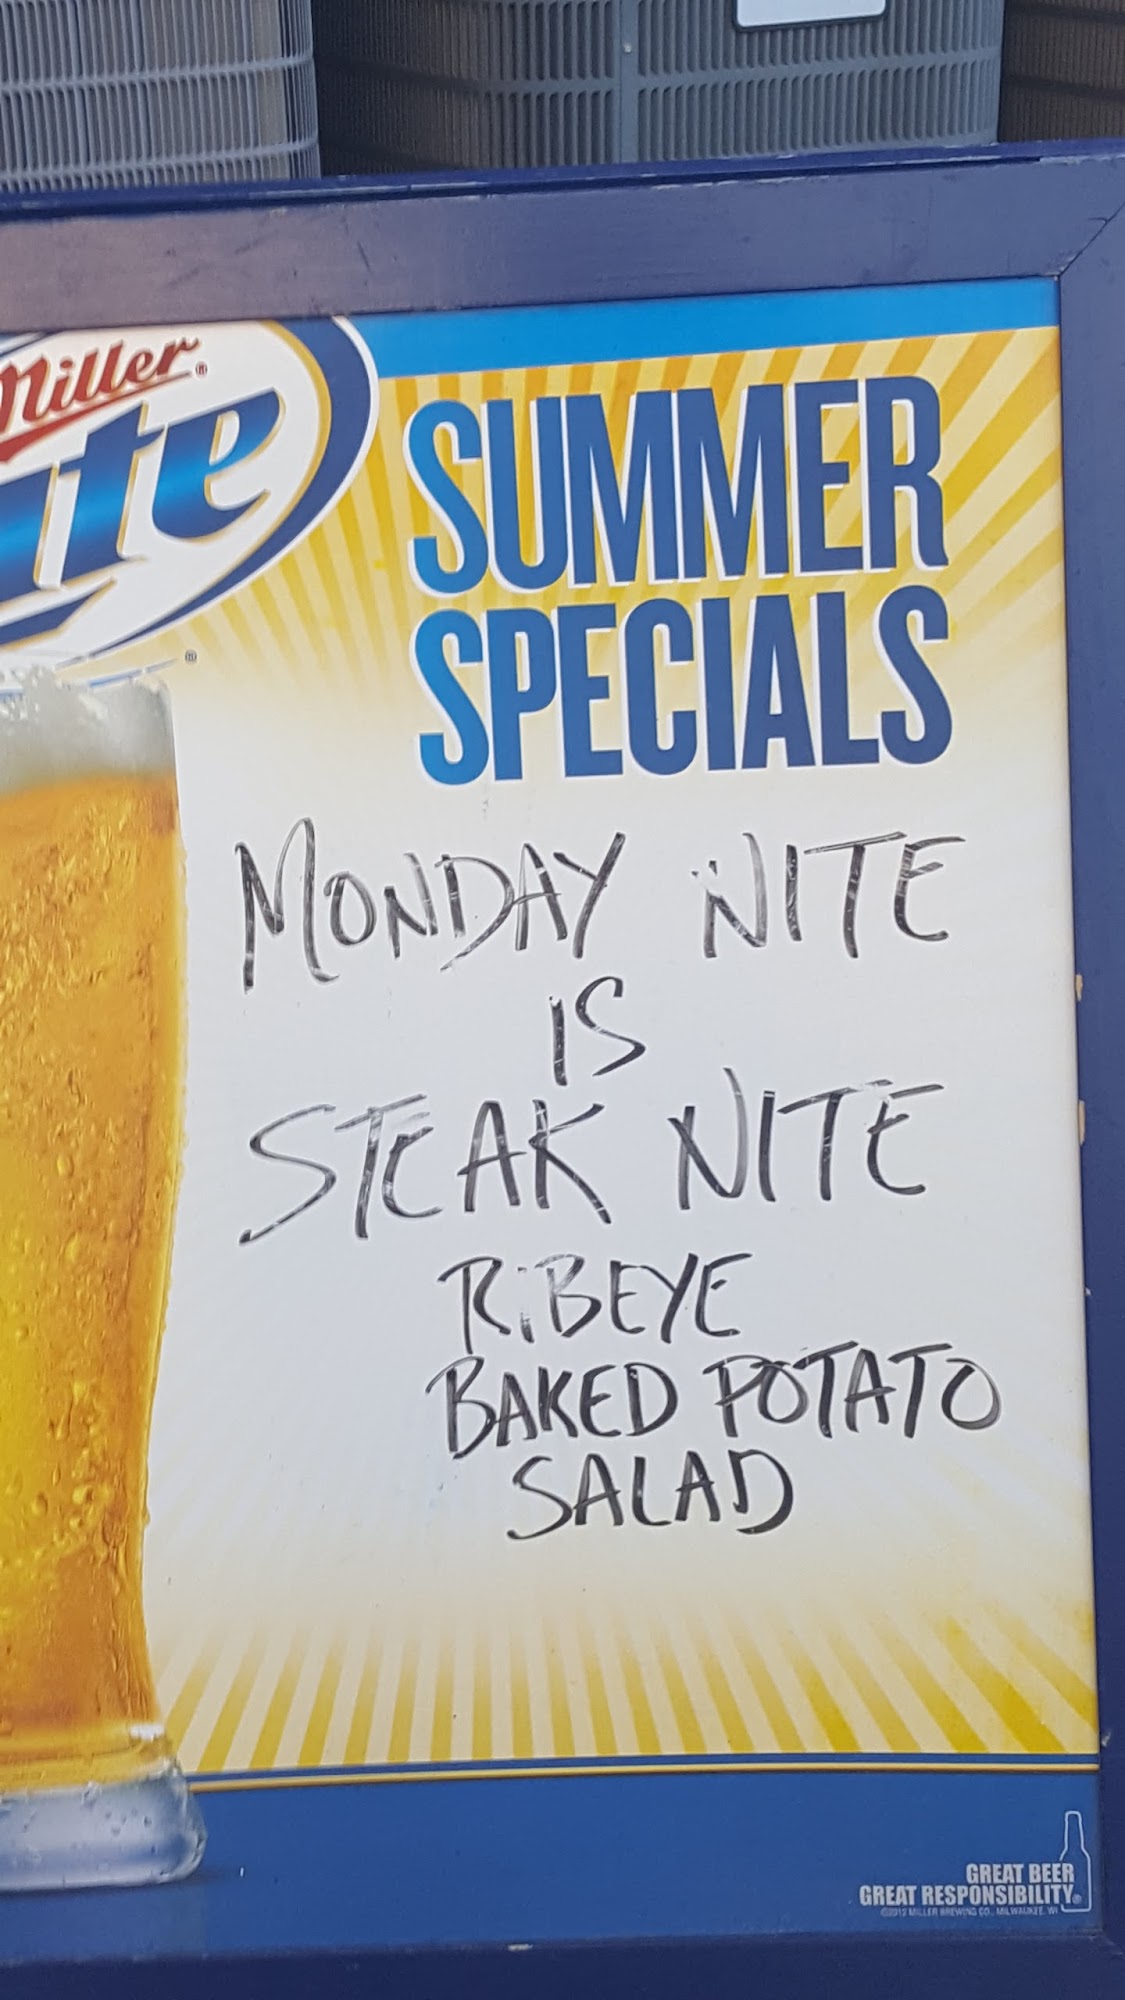 Miller®
ite
®
SUMMER
SPECIALS
MONDAY NITE
IS
STEAK NITE
RiBEYE
BAKED POTATO
SALAD
GREAT BEER
GREAT RESPONSIBILITY®
©2012 MILLER BREWING CO., MILWAUKEE, WI